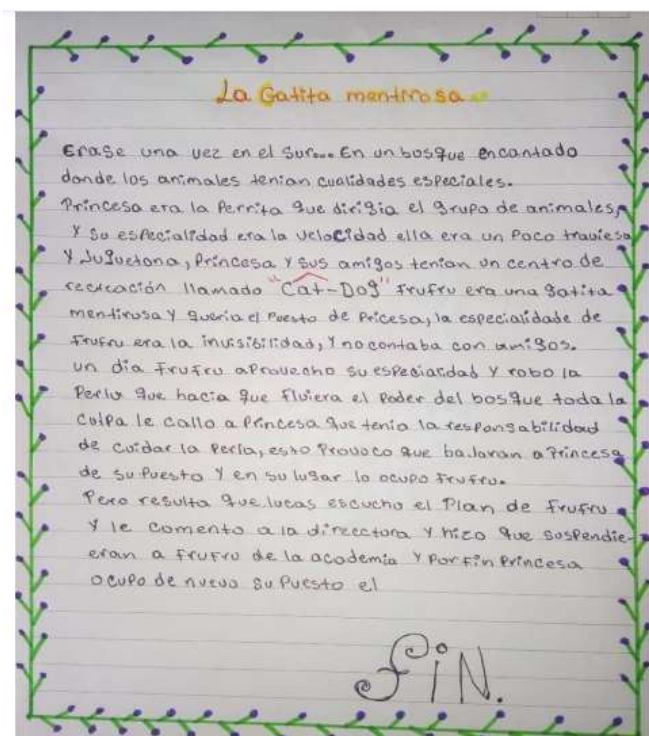 La Gatita mentirosa
Erase una vez en el sur... En un bosque encantado
donde los animales tenian cualidades especiales.
Princesa era la Perrita que dirigia el grupo de animales,
Y su especialidad era la velocidad ella era un Poco traviesa
Y Juguetona, Princesa Y sus amigos tenian un centro de
recreación llamado "Cat-Dog" frufru era una gatita
mentirosa Y queria el Puesto de Pricesa, la especialidade de
frufru era la invisibilidad, Y no contaba con amigos.
un dia frufru aProvecho su especiaridad Y robo la
Perla que hacia que fluiera el Poder del bosque toda la
culpa le callo a Princesa que tenia la responsabilidad
de cuidar la Perla, esto Provoco que bajaran a Princesa
de su Puesto Y en su lugar lo ocupo frufru.
Pero resulta que lucas escucho el Plan de frufru
Y le comento a la direectora Y hizo que suspendie-
eran a frufru de la academia Y Por fin Princesa
ocupo de nuevo su Puesto el
FiN.